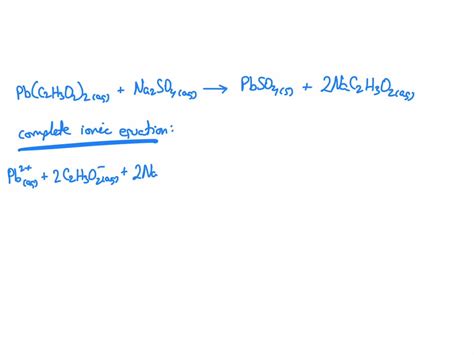 Pb(C₂H₃O₂)₂(aq) + Na₂SO₄(aq) → PbSO₄(s) + 2NaC₂H₃O₂(aq)
complete ionic equation:
Pb²⁺(aq) + 2C₂H₃O₂⁻(aq) + 2Na